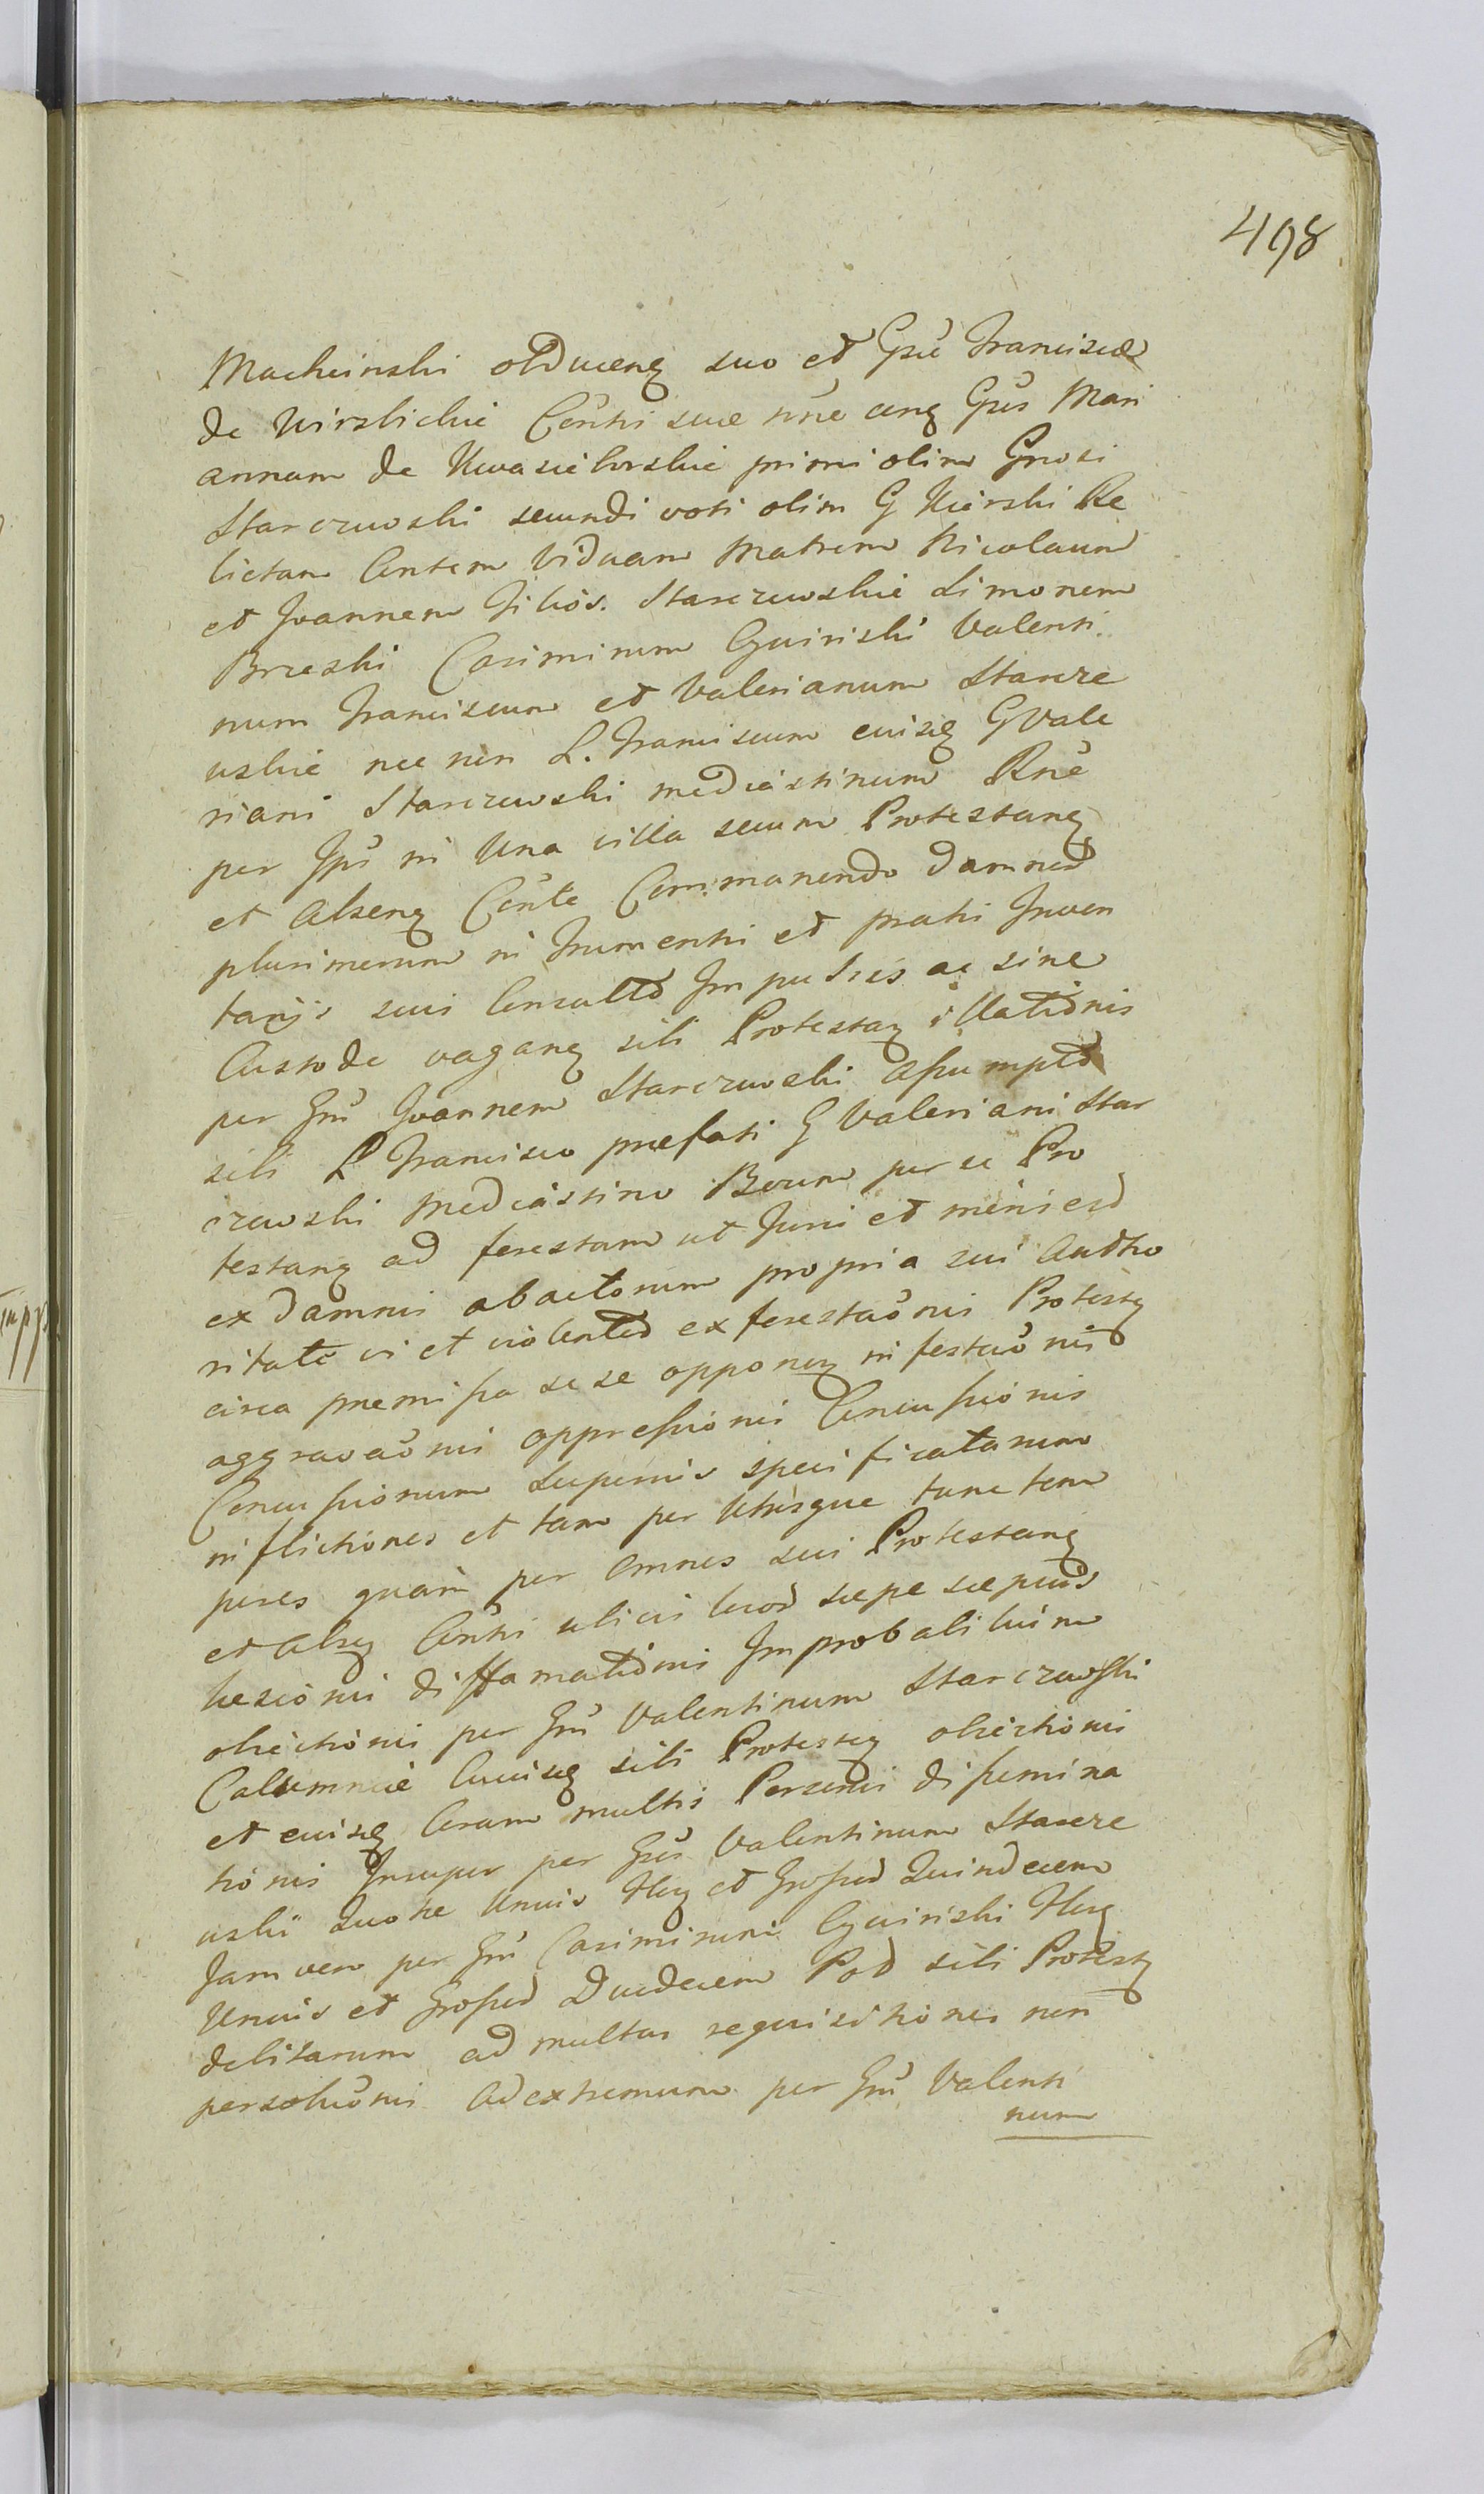 498
Machcinski adducens suo et Gsae Franciscae
de Wirzbickie Conthi suae nōe ceng Gsūs Mari
annam de Kwasieborskie primi olim Gnosi
Starczewski secundi voti olim G Kierski Re
lictam Contem Viduam Matrem Nicolaum
et Joannem Filios. Starczewskie Simonem
Brzeski Casimirum Gwiński Valenti
num Franciscum et Valerianum Starcze
wskie nec non L. Franciscum eiusq G Vale
riani Starczewski mediastinum Rnē
per Ipsū in Una villa secum Protestanq
et Alsenq Conte Commanendo damnor
plurimorum in Frumentis et pratis Inven
tarijs suis Consulto Impulsis ac sine
Custode vagang sibi Protestanq illationis
per Gnū Joannem Starczewski Assumpto
sibi L Francisco praefati G Valeriani Star
czewski mediastino Boum per se Pro
testanq ad forestam ut Juris et moris est
ex damnis abactorum propria sui Autho
ritate vi et violenter exforestaōnis Protestq
circa praemissa sese opponenq infestaōnis
aggravaōnis oppressionis Concussionis
Concussionum Superius specificatarum
inflictiones et tam per Utrisque tunc tem
pores quam per Omnes sui Protestanq
et Alsq Conthi ubivis locor saepe saepius
laesionis diffamationis Improbabilium
obiectionis per Gnū Valentinum Starczewski
Calumniae Cuiusq sibi Protestq obiectionis
et eiusq Coram multis Personis dissemina
tionis Insuper per Gsūs Valentinum Starcze
wski Quota Unius Flor et Grossor Quindecem
Jam vero per Gnū Casimirum Gwiński Flor
Unius et Grossor Duodecem Pol sibi Protestq
debitarum ad multas requisitiones non
persoluōnis Ad extremum per Gnū Valenti
num